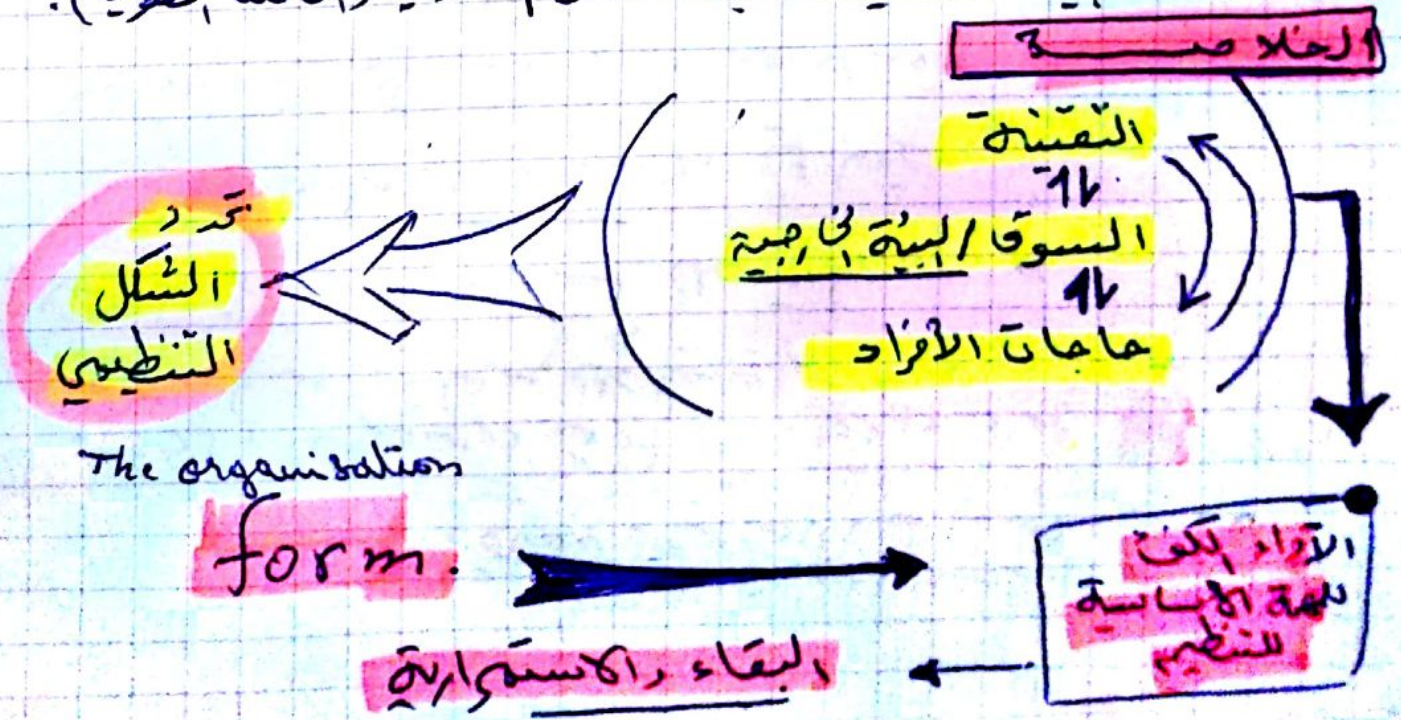 الخلاصة
التقنية
السوق / البيئة الخارجية
حاجات الأفراد
تحدد
الشكل
التنظيمي
The organisation
form.
الأداء الكفء
للمهمة الأساسية
للتنظيم
البقاء والاستمرارية